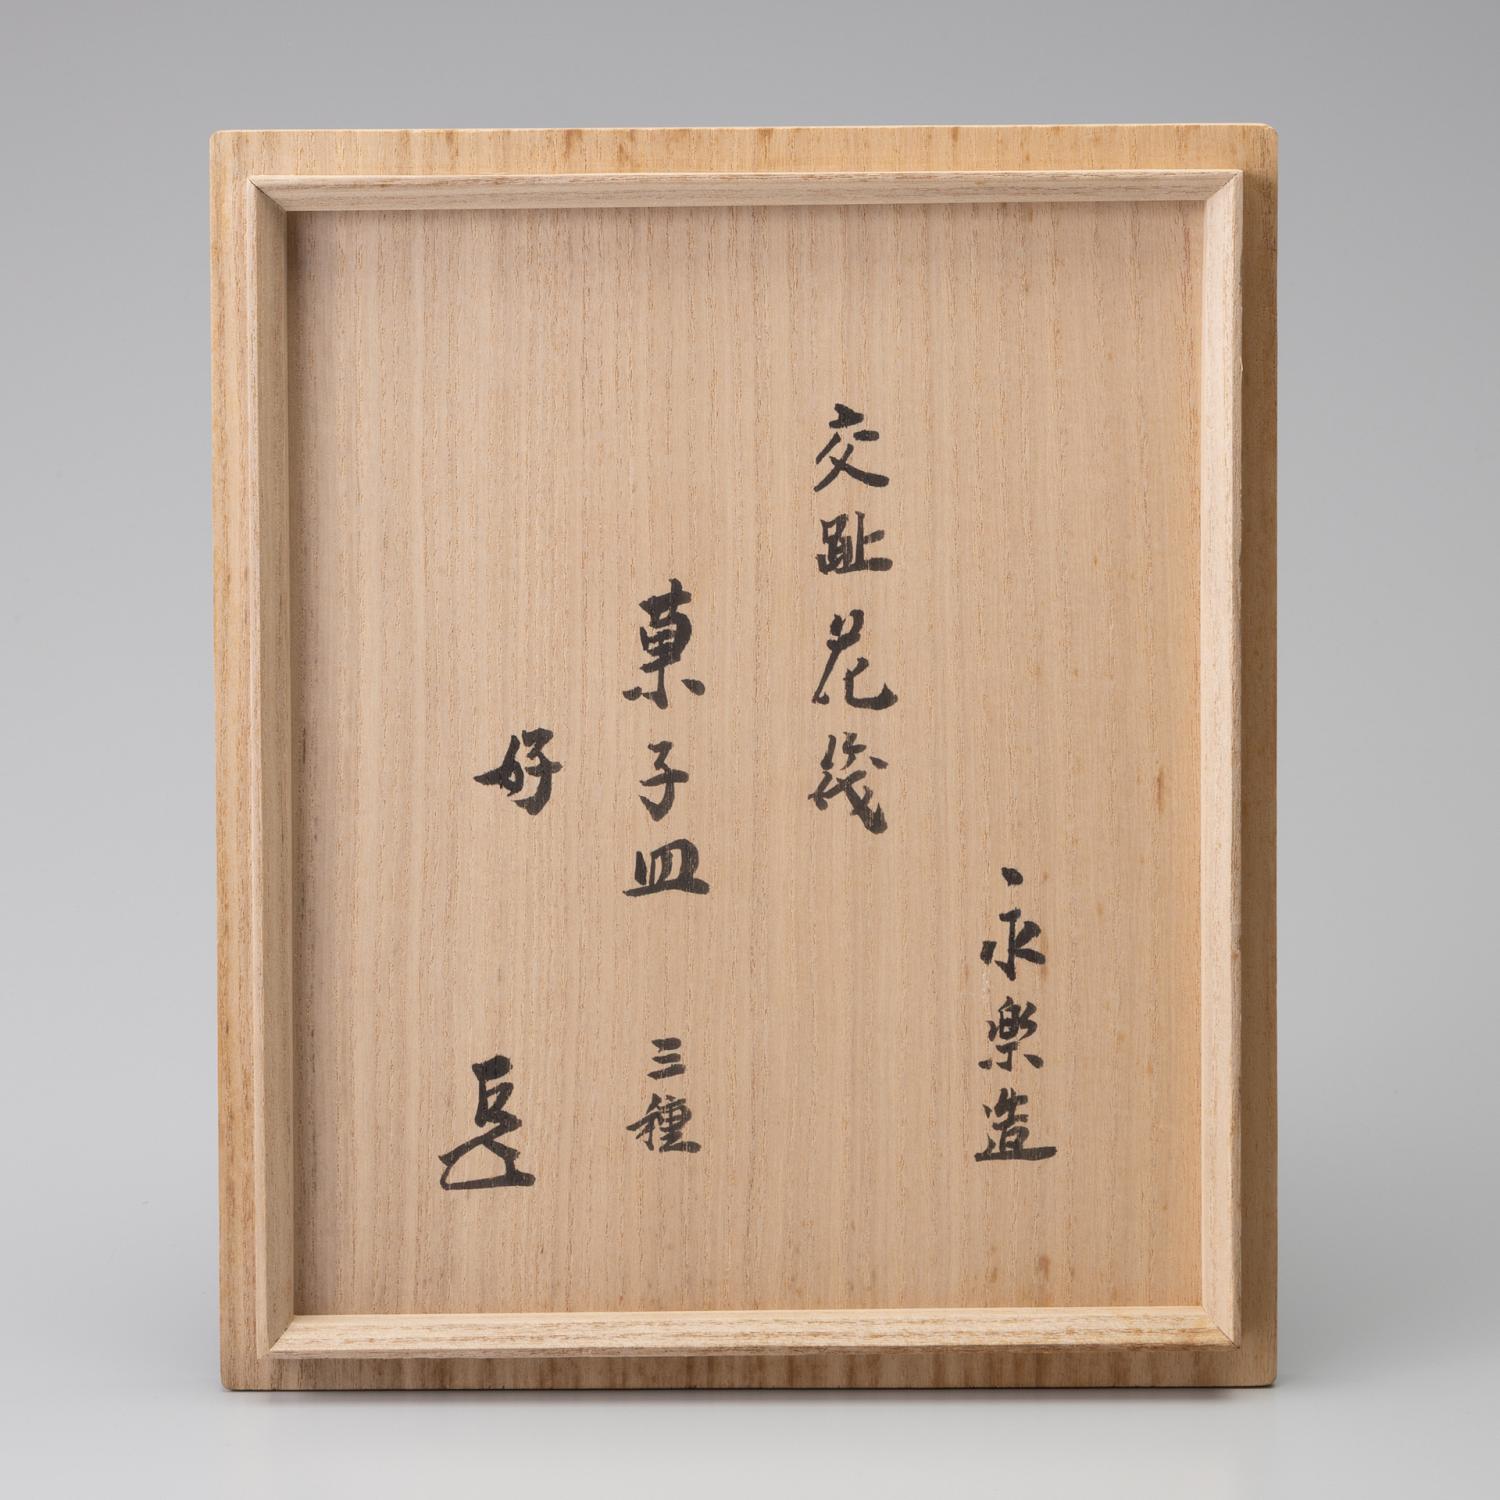 永樂造
交趾花筏
菓子皿 三種
好